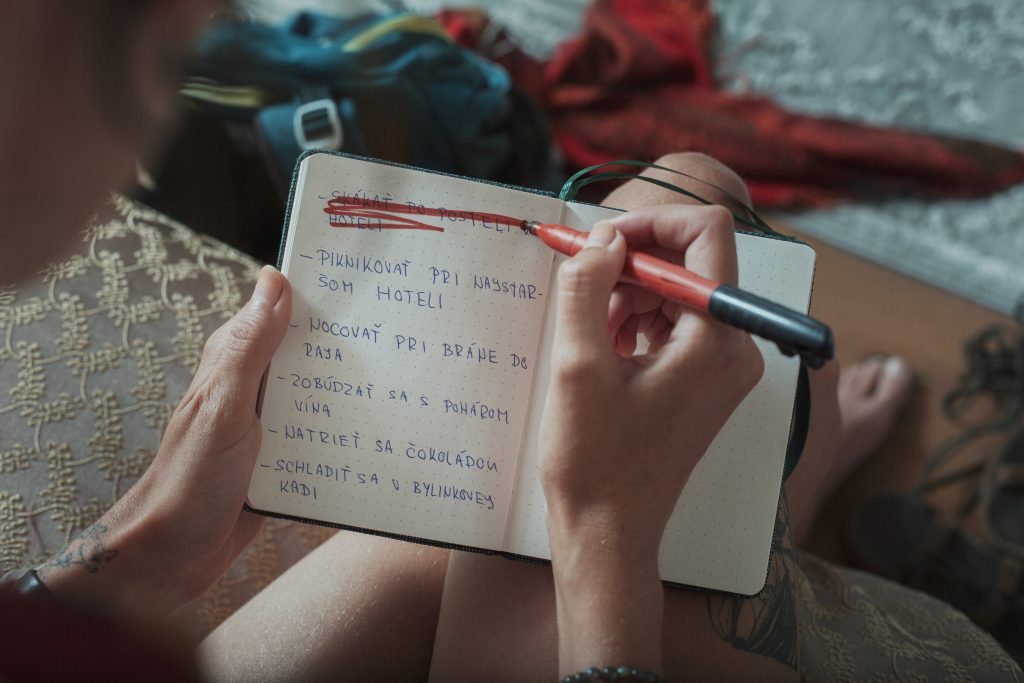 - SKÁKAŤ PO POSTELI V
HOTELI
- PIKNIKOVAŤ PRI NAYSTAR-
ŠOM HOTELI
- NOCOVAŤ PRI BRÁNE DO
RAYA
- ZOBÚDZAŤ SA S POHÁROM
VÍNA
- NATRIEŤ SA ČOKOLÁDOU
- SCHLADIŤ SA V BYLINKOVEY
KADI